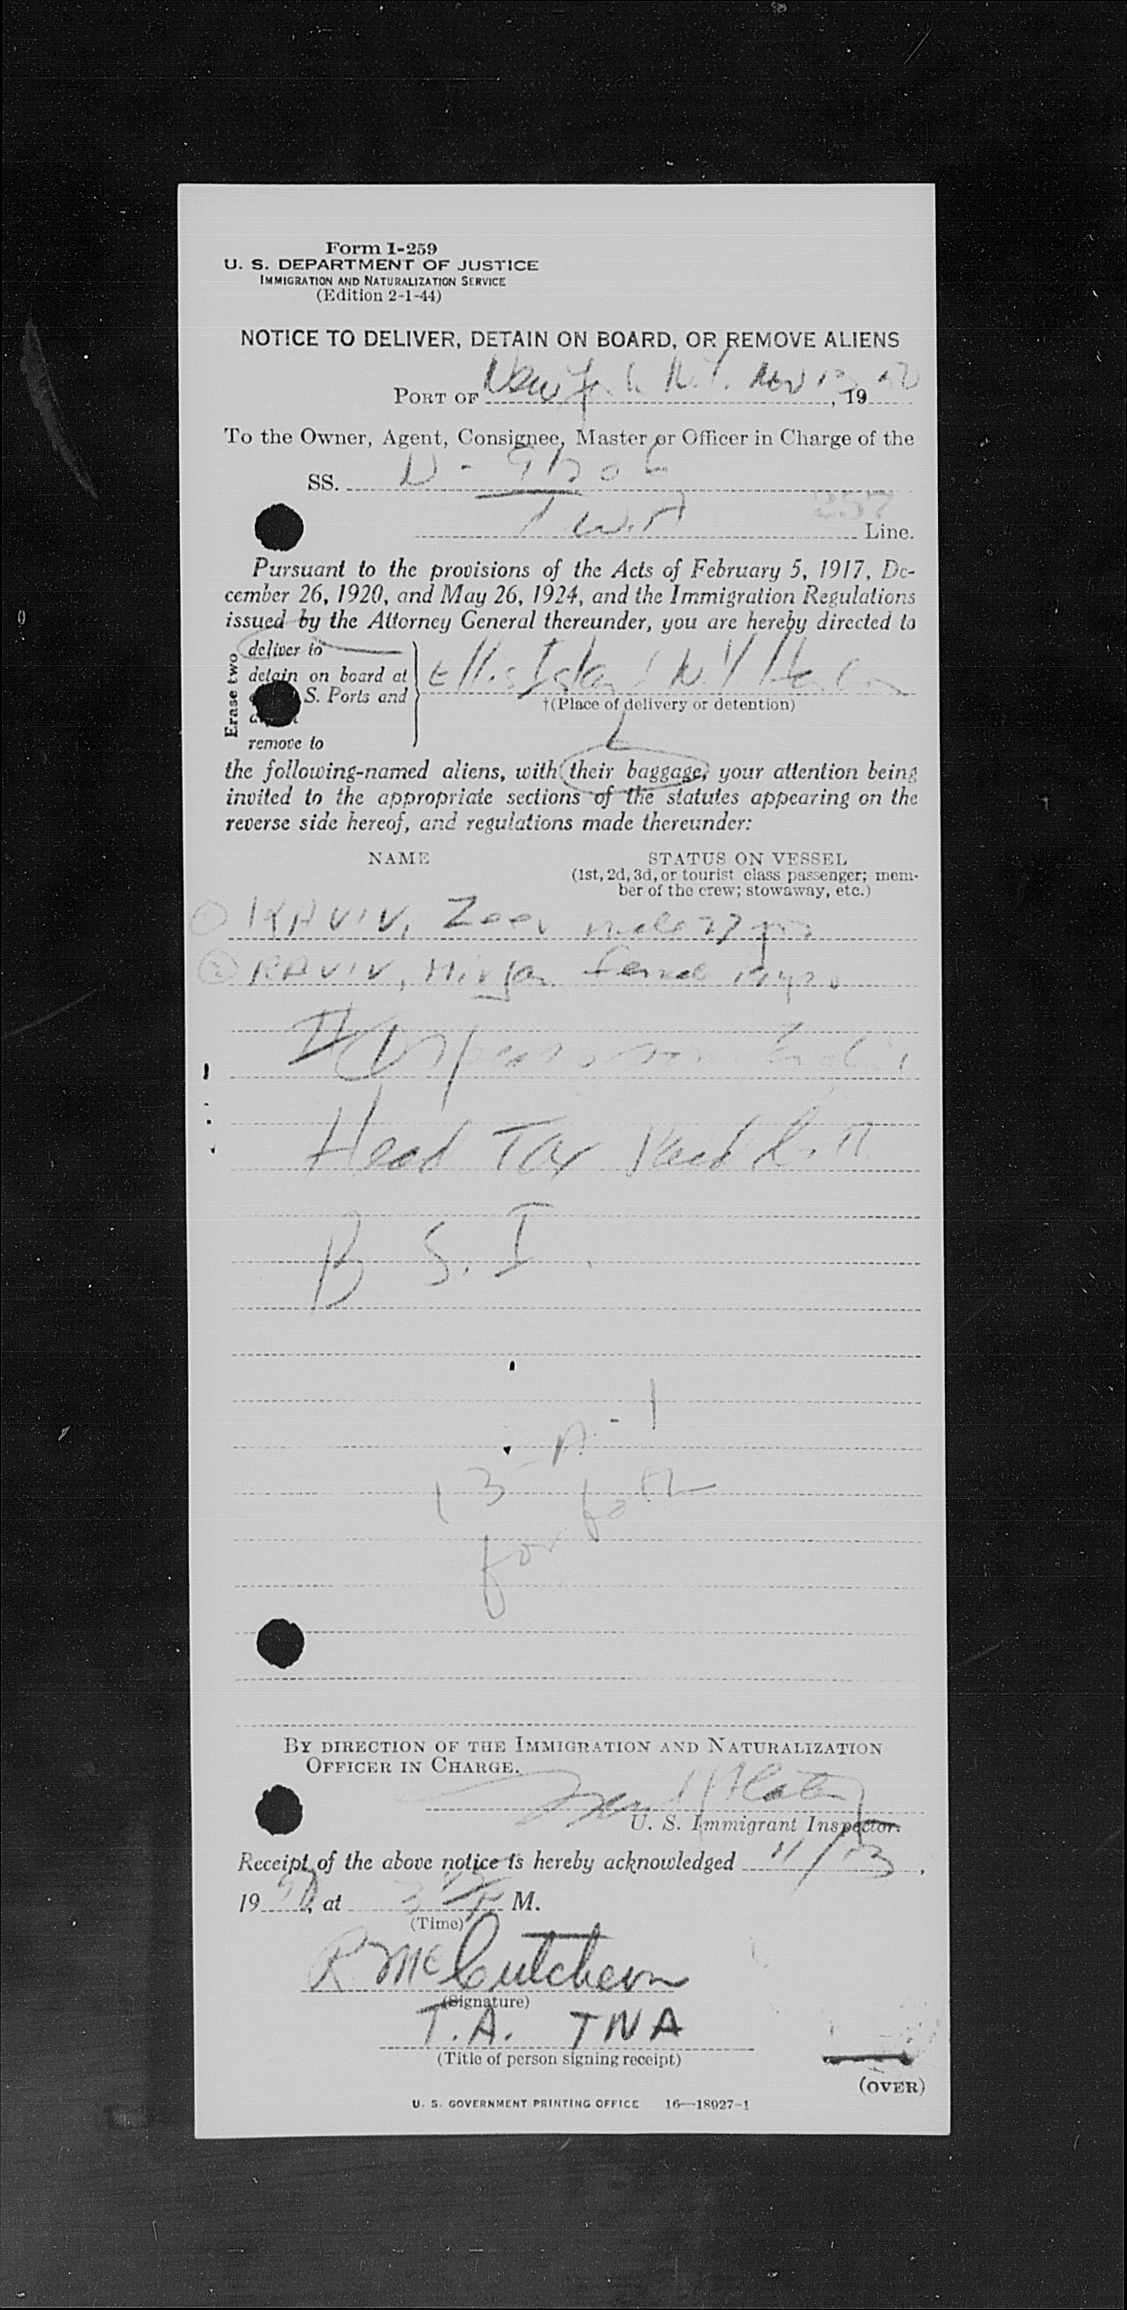 Form I-259
U. S. DEPARTMENT OF JUSTICE
IMMIGRATION AND NATURALIZATION SERVICE
(Edition 2-1-44)
NOTICE TO DELIVER, DETAIN ON BOARD, OR REMOVE ALIENS
PORT OF New York N.Y. Nov 13, 19 50
To the Owner, Agent, Consignee, Master or Officer in Charge of the
SS. N-
257
T W A Line.
Pursuant to the provisions of the Acts of February 5, 1917, De-
cember 26, 1920, and May 26, 1924, and the Immigration Regulations
issued by the Attorney General thereunder, you are hereby directed to
Erase two
deliver to
detain on board at
S. Ports and
remove to
Ellis Island N.Y. Harbor
†(Place of delivery or detention)
the following-named aliens, with their baggage, your attention being
invited to the appropriate sections of the statutes appearing on the
reverse side hereof, and regulations made thereunder:
NAME
STATUS ON VESSEL
(1st, 2d, 3d, or tourist class passenger; mem-
ber of the crew; stowaway, etc.)
1 RAVIV, Zeev male 27 yrs
2 RAVIV, Mirjam female 19 yrs
Head Tax
B S. I.
13-A-1
for both
BY DIRECTION OF THE IMMIGRATION AND NATURALIZATION
OFFICER IN CHARGE.
U. S. Immigrant Inspector.
Receipt of the above notice is hereby acknowledged 11/13,
19 50, at 3 P M.
(Time)
R. McCutcheon
(Signature)
T.A. TWA
(Title of person signing receipt)
(OVER)
U. S. GOVERNMENT PRINTING OFFICE 16—18927-1